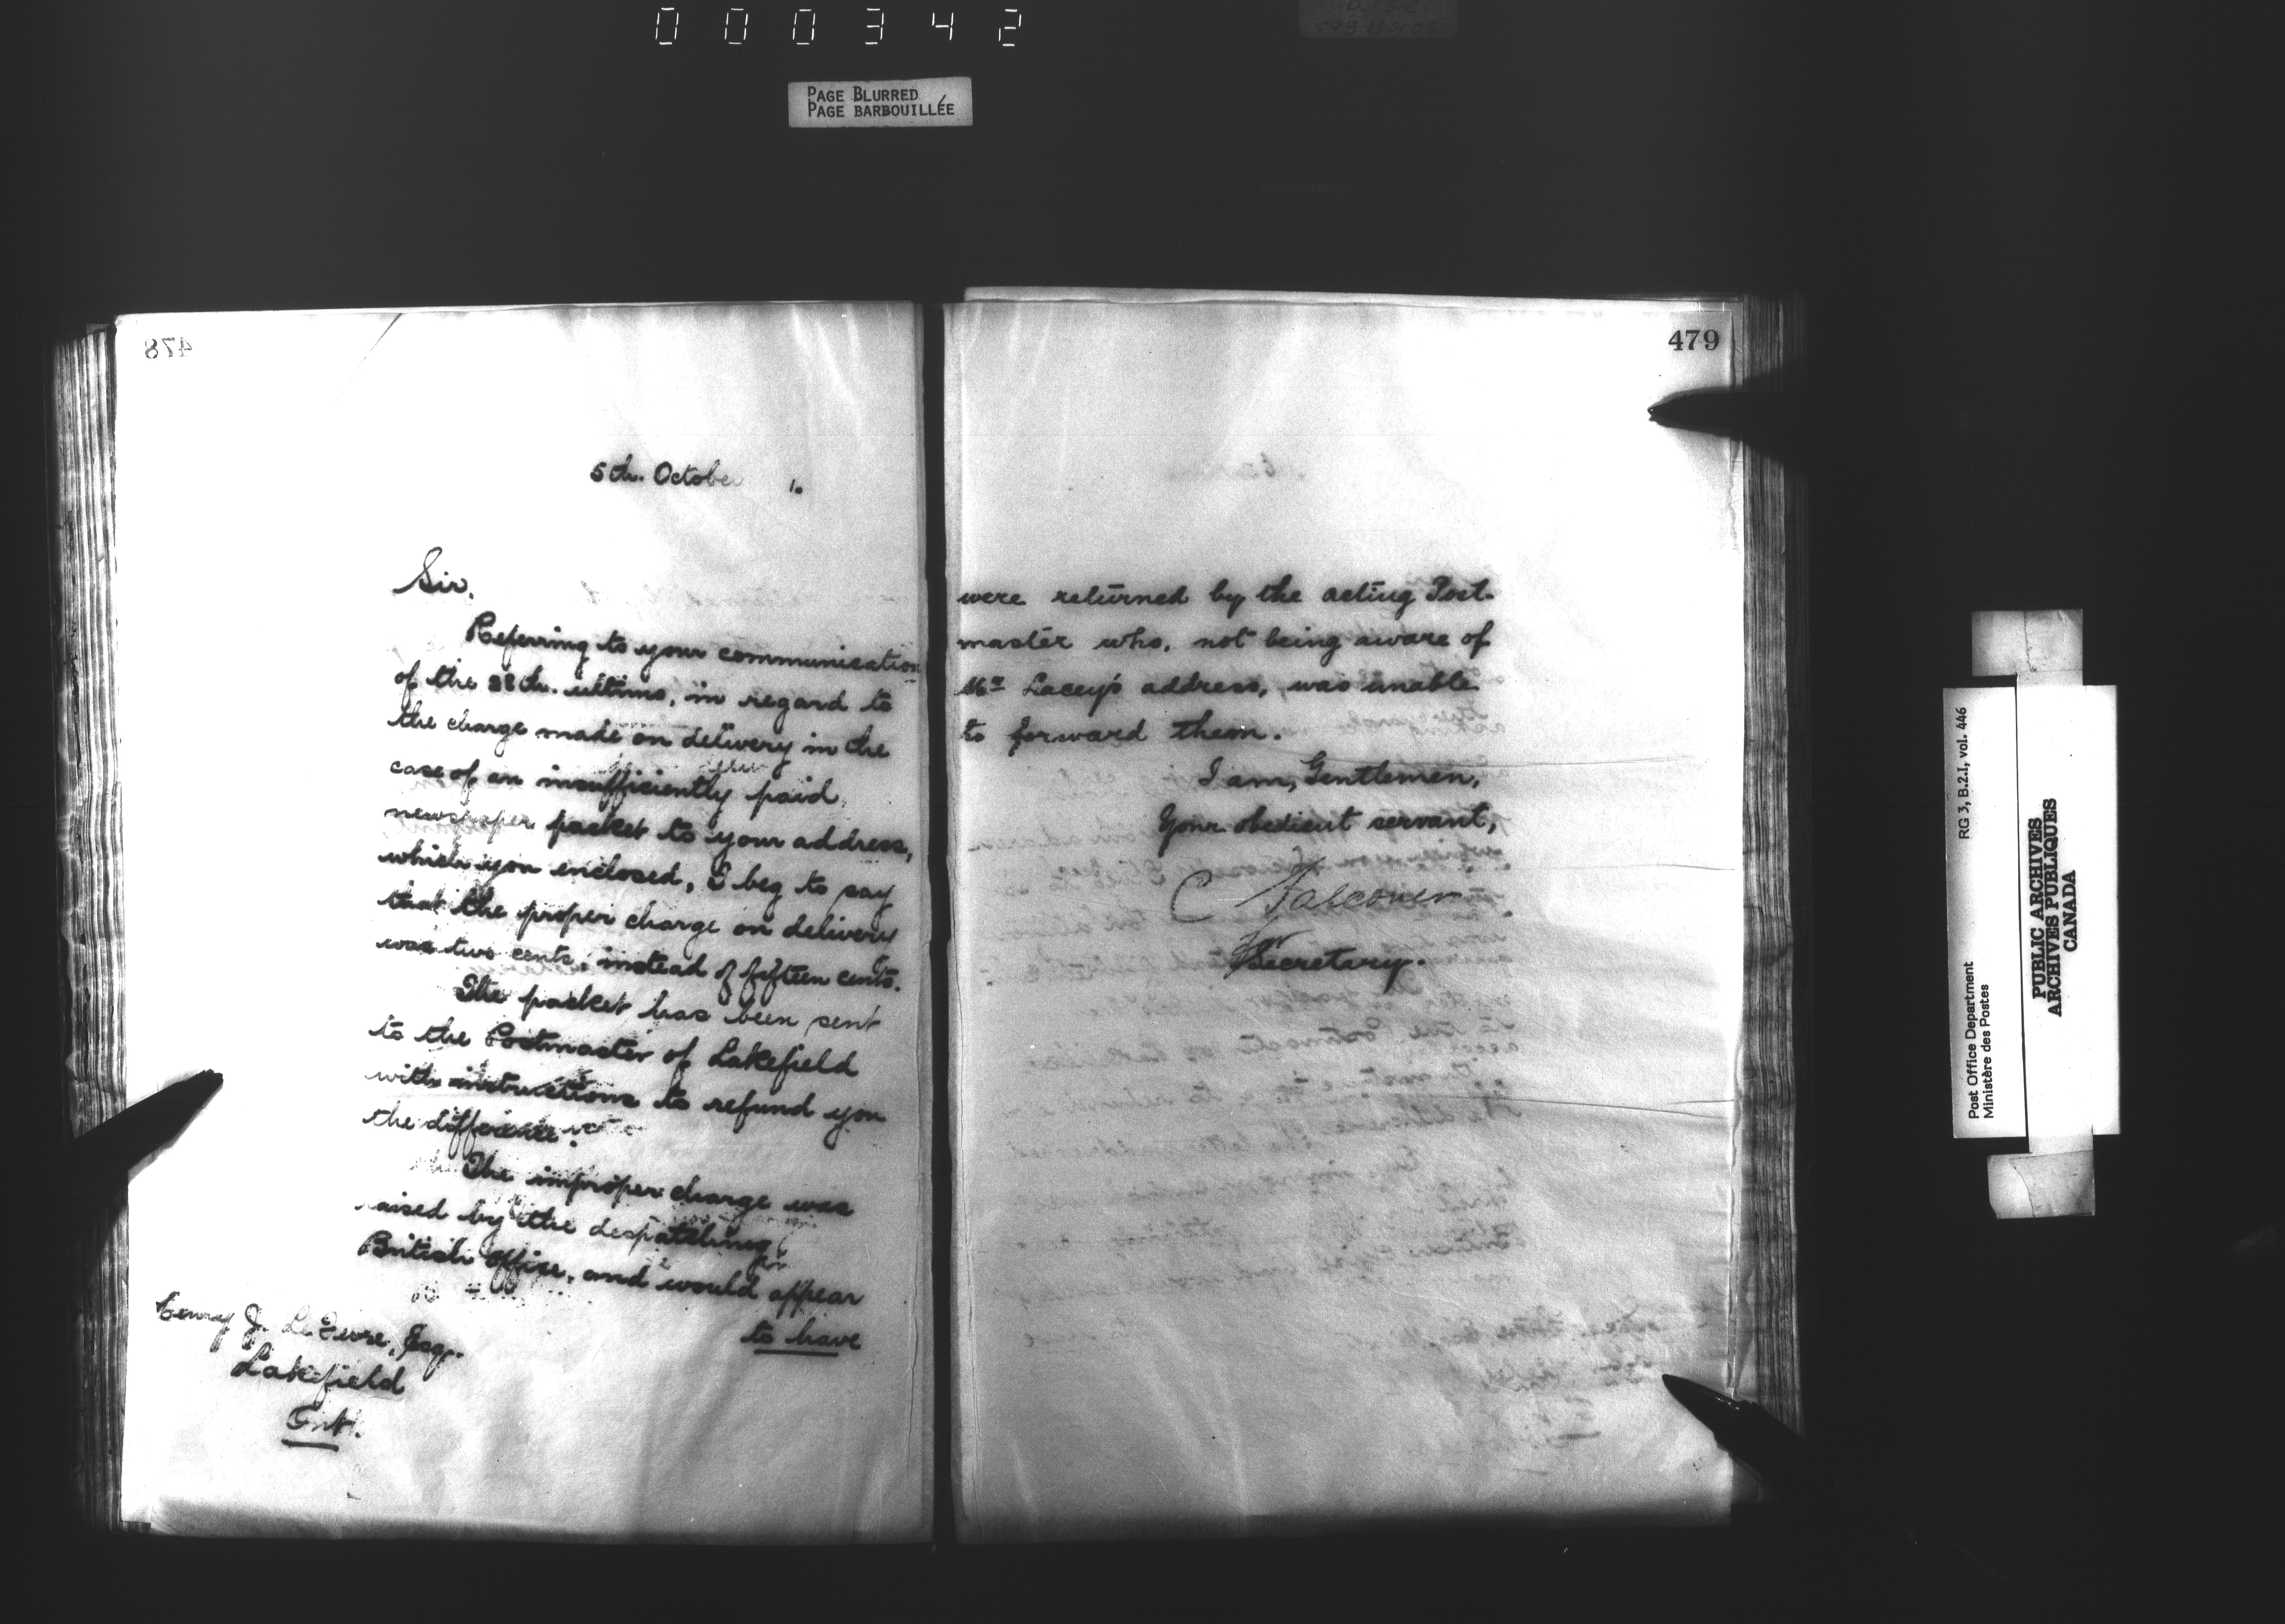 000342
PAGE BLURRED
PAGE BARBOUILLÉE
478
5th. October 1.
Sir,
Referring to your communication
of the 28th. ultimo, in regard to
the charge made on delivery in the
case of an insufficiently paid
newspaper packet to your address,
which you enclosed, I beg to say
that the proper charge on delivery
was two cents, instead of fifteen cents.
The packet has been sent
to the Postmaster of Lakefield
with instructions to refund you
the difference.
The improper charge was
raised by the despatching
British office, and would appear
to have
Henry J. Le Fevre, Esq.
Lakefield
Ont.
479
were returned by the acting Post-
master who, not being aware of
Mr Lacey's address, was unable
to forward them.
I am, Gentlemen,
Your obedient servant,
C Falconer
for
Secretary.
Post Office Department RG 3, B.2.I, vol. 446
Ministère des Postes
PUBLIC ARCHIVES
ARCHIVES PUBLIQUES
CANADA